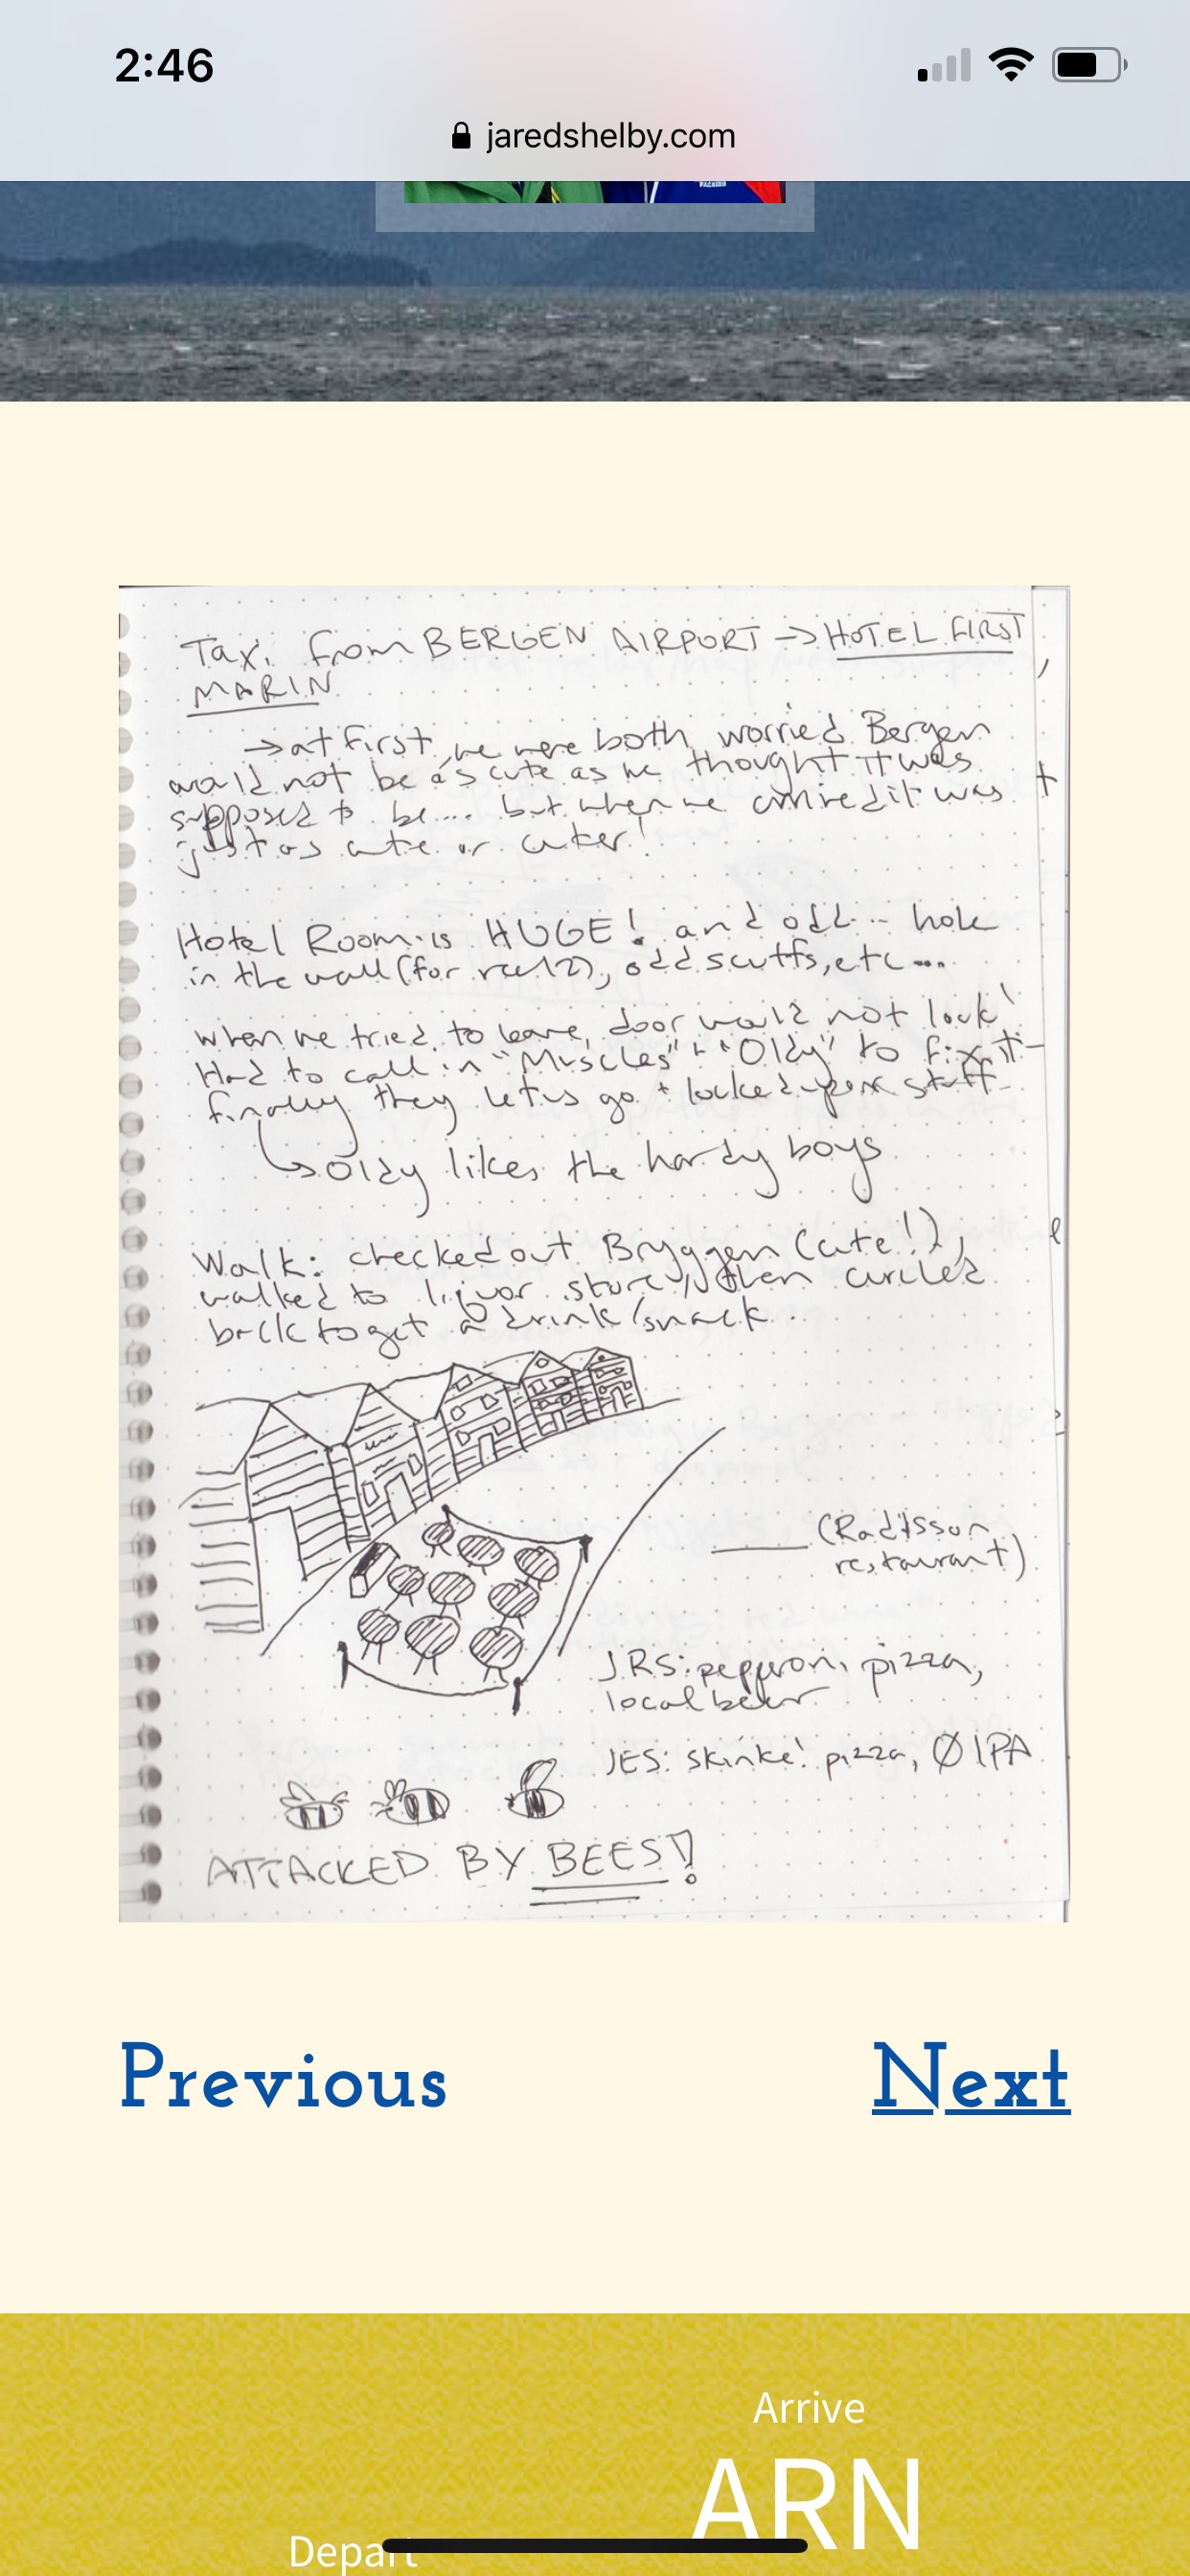 2:46
jaredshelby.com
Taxi from BERGEN AIRPORT → HOTEL FIRST
MARIN
→ at first, we were both worried Bergen
would not be as cute as we thought it was
supposed to be... but when we arrived it was
just as cute or cuter!
Hotel Room is HUGE! and odd... hole
in the wall (for real?), odd scuffs, etc...
when we tried to leave, door would not lock!
Had to call in "Muscles" + "Oldy" to fix it-
finally they let us go + locked up our stuff
↳ Oldy likes the hardy boys
Walk: checked out Bryggen (cute!),
walked to liquor store, then circled
back to get a drink/snack...
(Radisson
restaurant)
JRS: pepperoni pizza,
local beer
JES: skinke! pizza, Ø IPA
ATTACKED BY BEES!
Previous
Next
Arrive
ARN
Depart